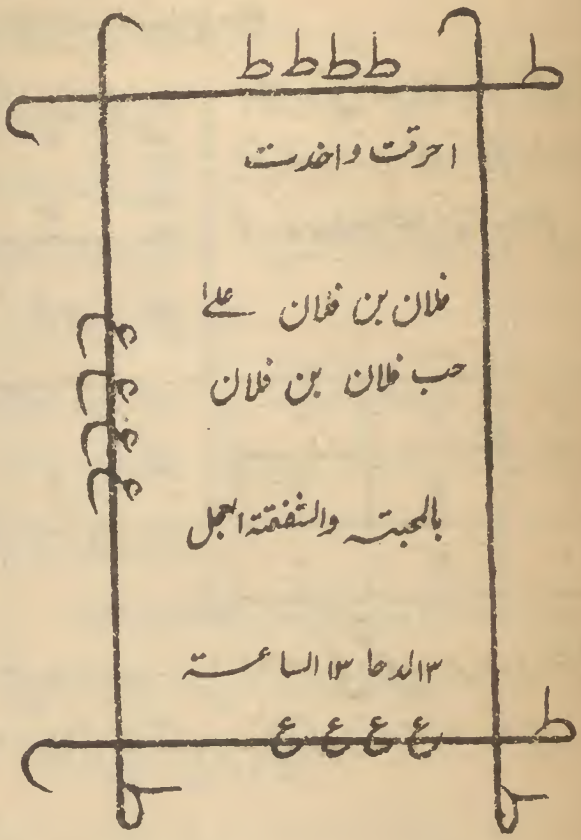 ط ط ط ط
ط
احرقت واخدت
فلان بن فلان علے
حب فلان بن فلان
ع
ع
ع
ع
بالمحبتہ والشفقتہ العجل
٣الدحا ٣ا الساعستہ
ع ع ع ع
ط
ط
ط